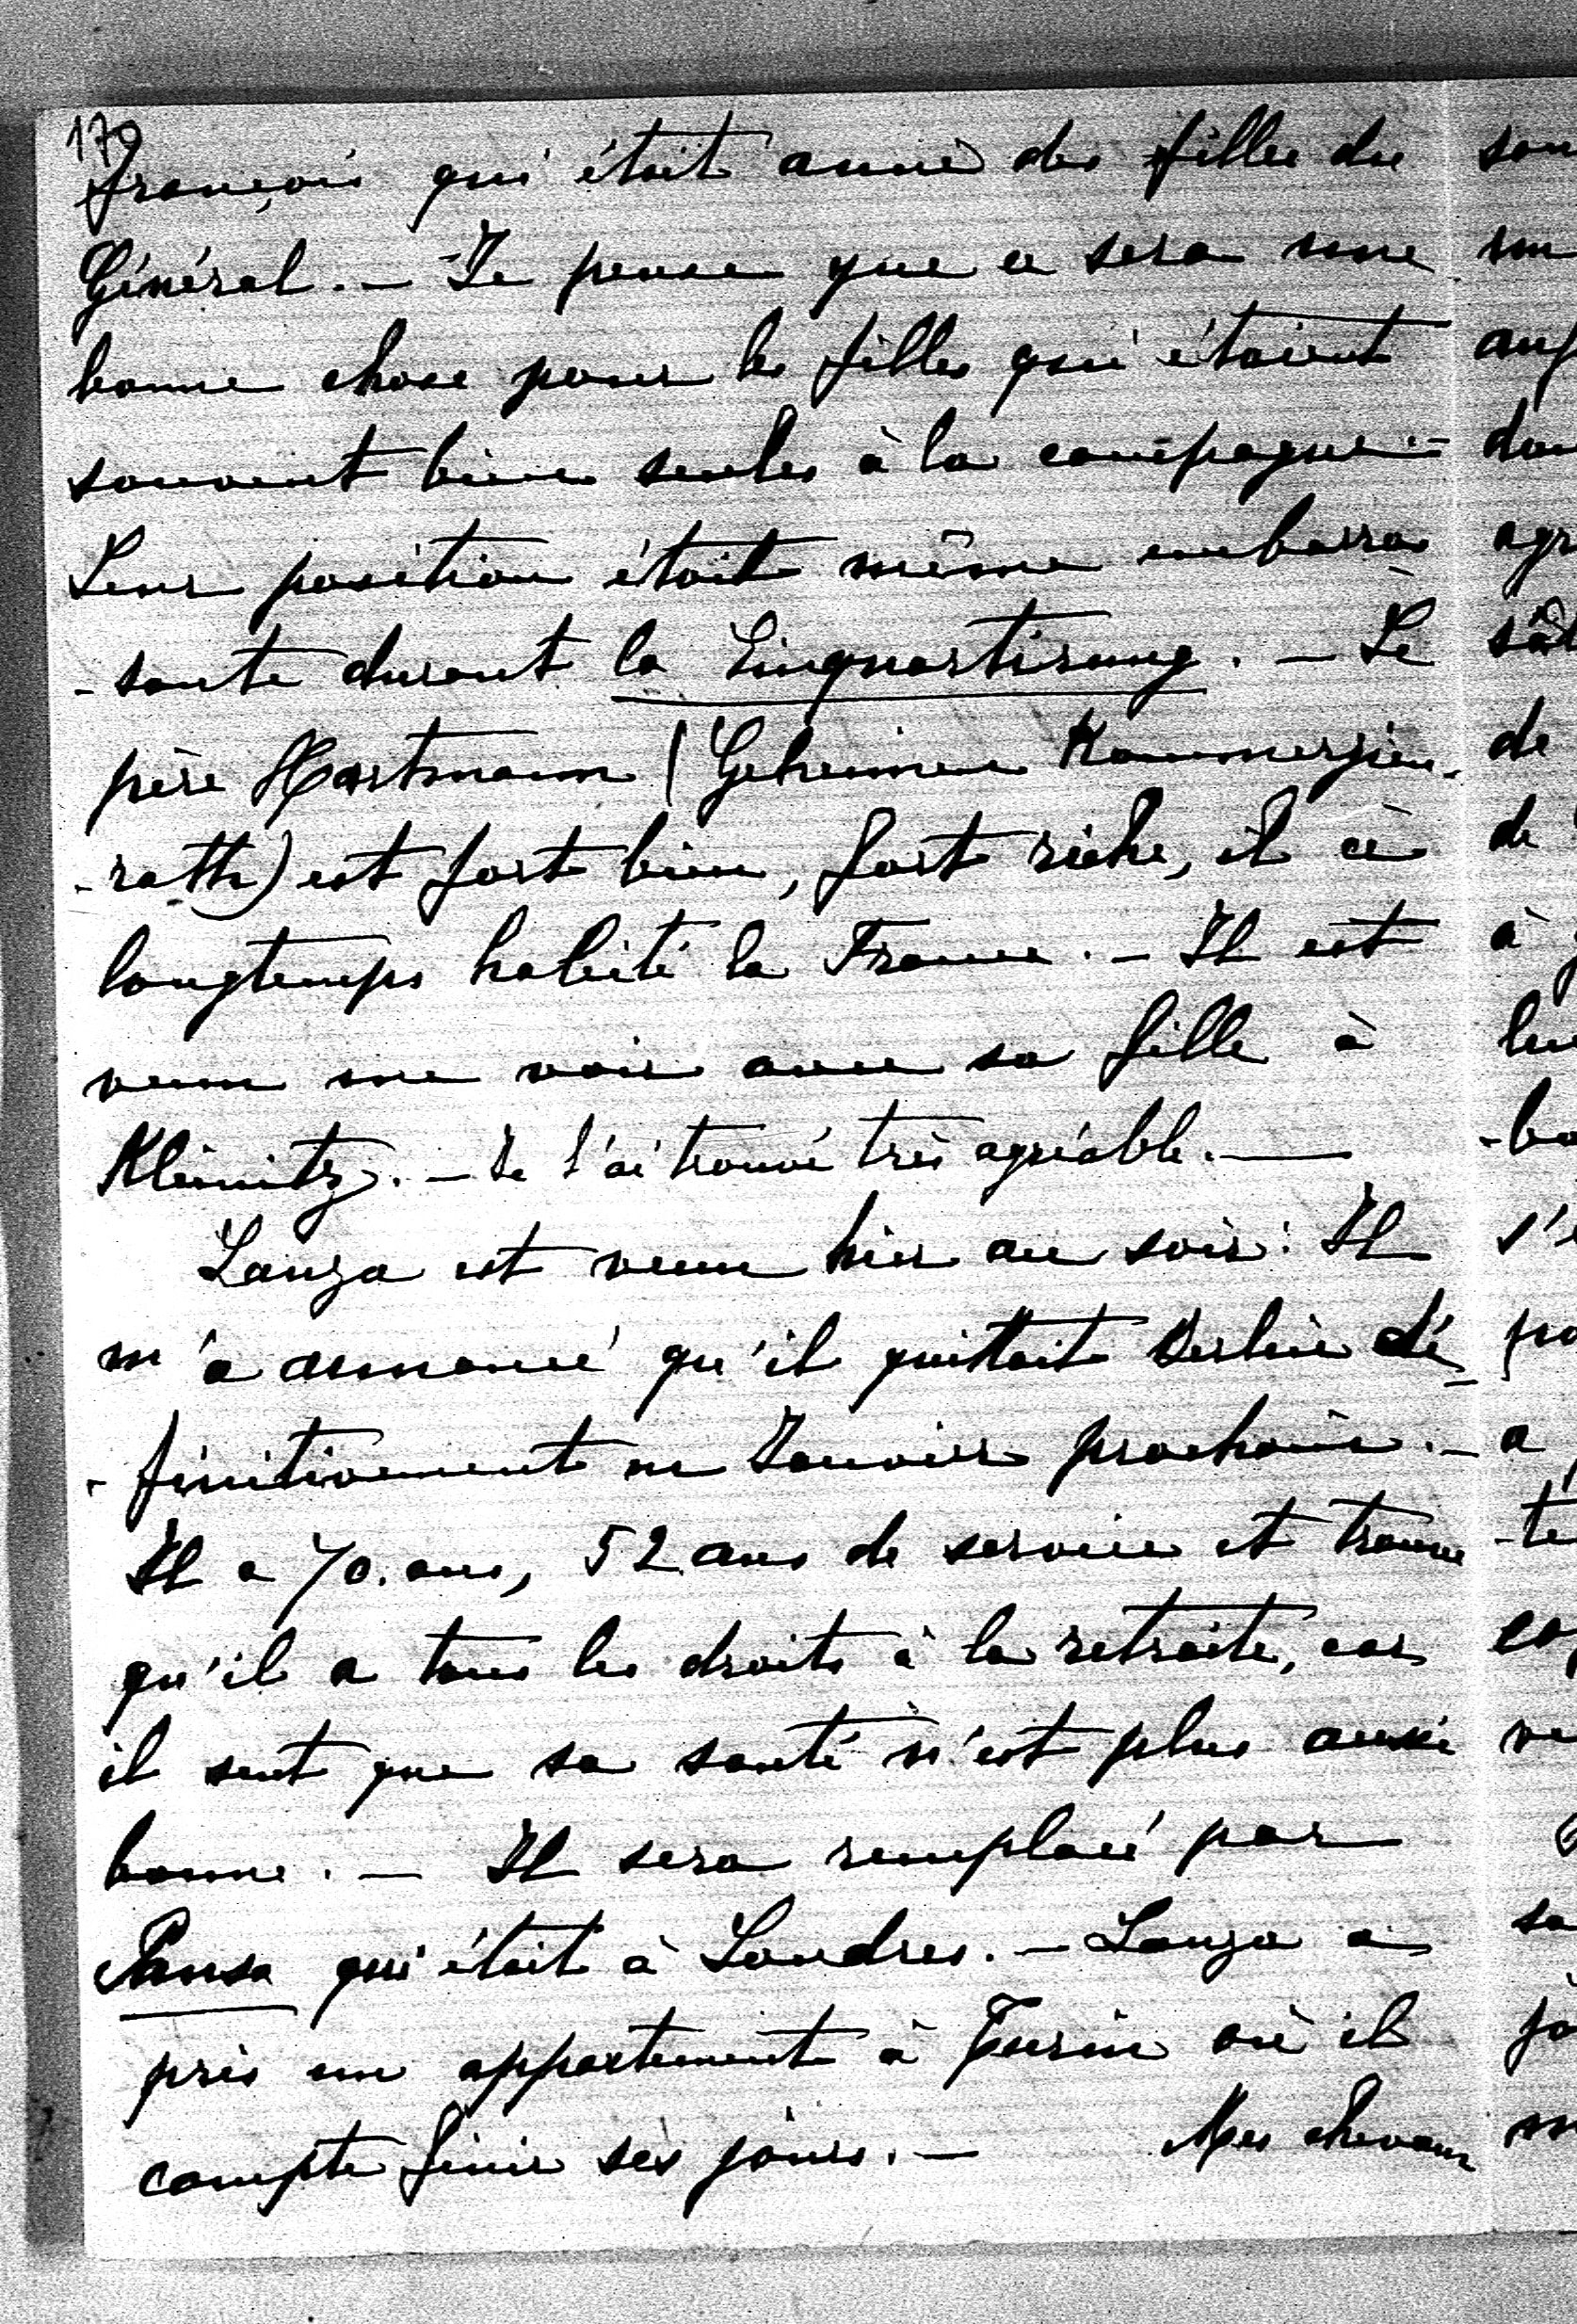 179
François qui était année des filles du
Général. — Je pense que ce sera une
bonne chose pour les filles qui étaient
souvent bien seules à la campagne —
Leur position était même embarras
-sante durant la Einquartirung. — Le
père Hartmann (Geheimer Kommerzien-
-rath) est fort bien, fort riche, il a
longtemps habité la France. — Il est
venu me voir avec sa fille à
Kleinitz. — Je l'ai trouvé très agréable. —
Lanza est venu hier au soir. Il
m'a annoncé qu'il quittait Berlin dé-
-finitivement en Janvier prochain. —
Il a 70. ans, 52 ans de service et trouve
qu'il a tous les droits à la retraite, car
il sent que sa santé n'est plus aussi
bonne. — Il sera remplacé par
Pansa qui était à Londres. — Lanza a
pris un appartement à Turin où il
compte finir ses jours. — Mes chevaux